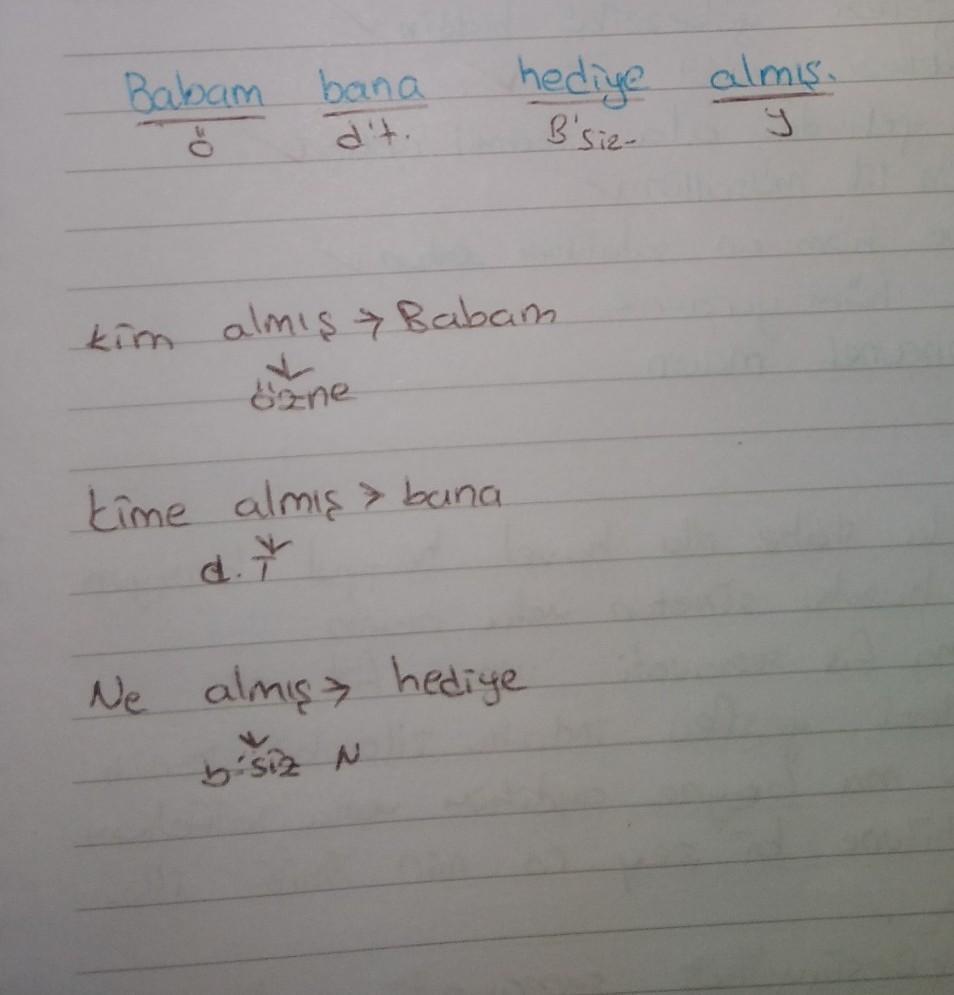 Babam bana hediye almış.
ö d't. B'siz- y
kim almış → Babam
özne
kime almış > bana
d. T
Ne almış → hediye
b'siz N